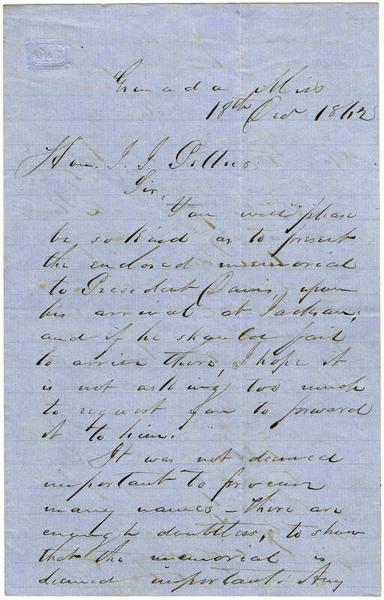 Grenada Miss
18th Decr 1862
Hon. J. J. Pettus.
Sir,
You will please
be so kind as to present
the enclosed memorial
to President Davis, upon
his arrival at Jackson,
and if he should fail
to arrive there, I hope it
is not asking too much
to request you to forward
it to him.
It was not deemed
important to procure
many names – There are
enough doubtless, to show
that the memorial is
deemed important. Any